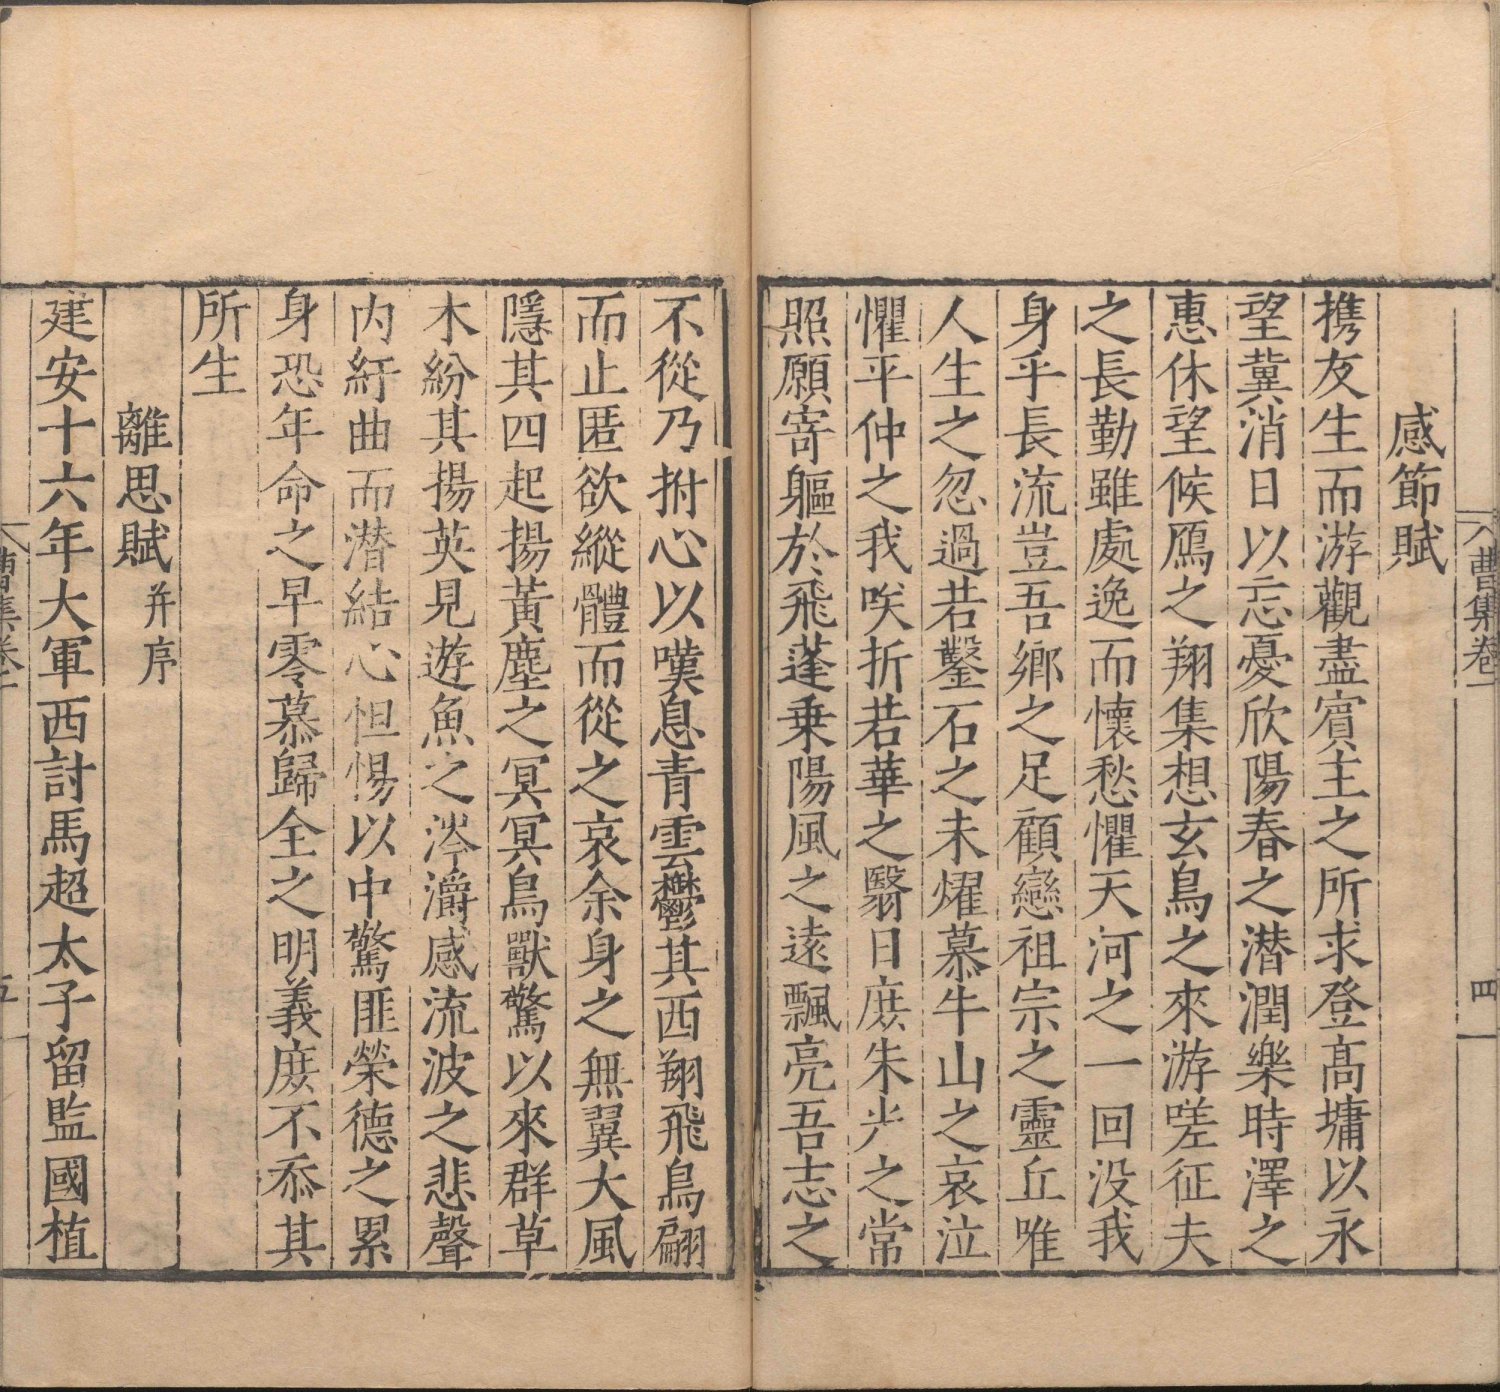 曹集卷一
四
感節賦
携友生而游觀盡賓主之所求登高墉以永
望冀消日以忘憂欣陽春之潜潤樂時澤之
惠休望候鴈之翔集想玄鳥之來游嗟征夫
之長勤雖處逸而懷愁懼天河之一回没我
身乎長流豈吾鄉之足顧戀祖宗之靈丘唯
人生之忽過若鑿石之未燿慕牛山之哀泣
懼平仲之我唉折若華之翳日庶朱光之常
照願寄軀於飛蓬乗陽風之逺飄亮吾志之
不從乃拊心以嘆息青雲鬱其西翔飛鳥翩
而止匿欲縱體而從之哀余身之無翼大風
隱其四起揚黃塵之冥冥鳥獸驚以來群草
木紛其揚英見遊魚之涔灂感流波之悲聲
内紆曲而潜結心怛惕以中驚匪榮德之累
身恐年命之早零慕歸全之明義庶不忝其
所生
離思賦并序
建安十六年大軍西討馬超太子留監國植
曹集卷
五